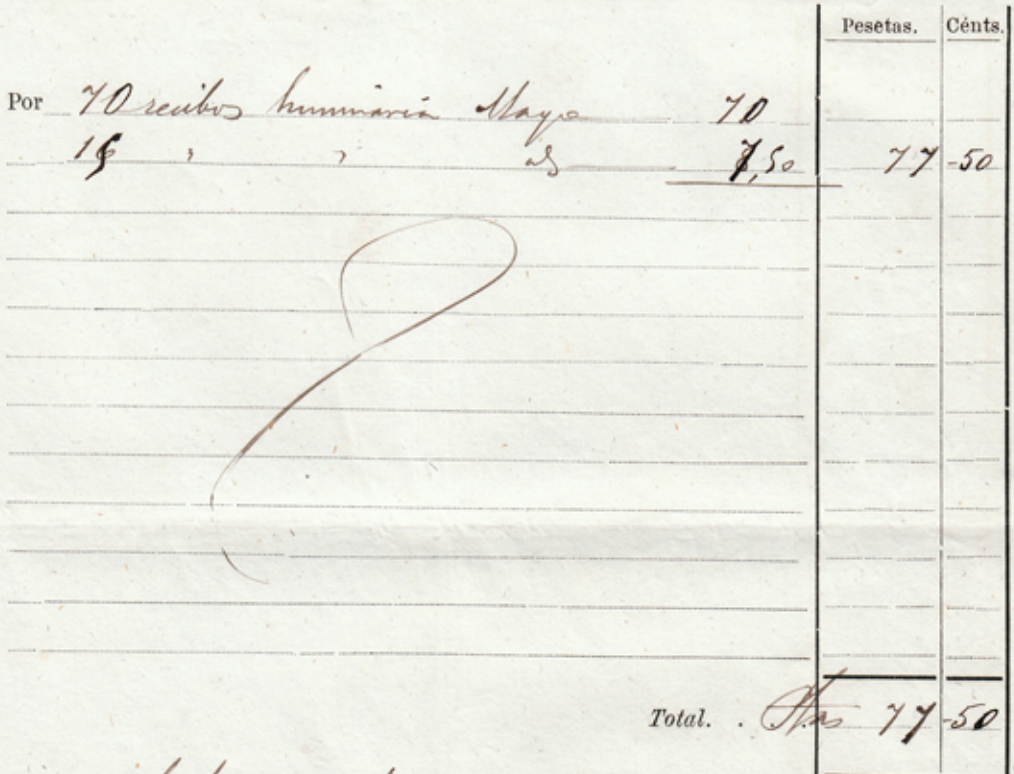 Pesetas. Cénts.
Por 70 recibos luminaria Mayo 70
15 " " id 7,50 77 -50
Total. . Ptas 77 -50